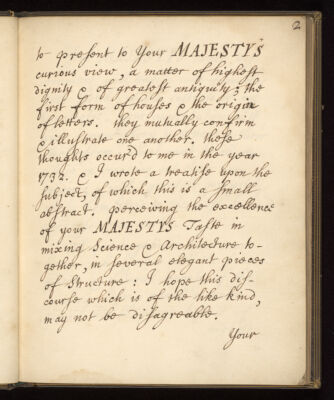 2
to present to Your MAJESTYS
curious view, a matter of highest
dignity & of greatest antiquity; the
first form of houses & the origin
of letters. they mutually confirm
& illustrate one another. these
thoughts occur'd to me in the year
1732. & I wrote a treatise upon the
subject, of which this is a small
abstract. perceiving the excellence
of your MAJESTYS Taste in
mixing Science & Architecture to-
gether, in several elegant pieces
of structure: I hope this dis-
course which is of the like kind,
may not be disagreable.
Your